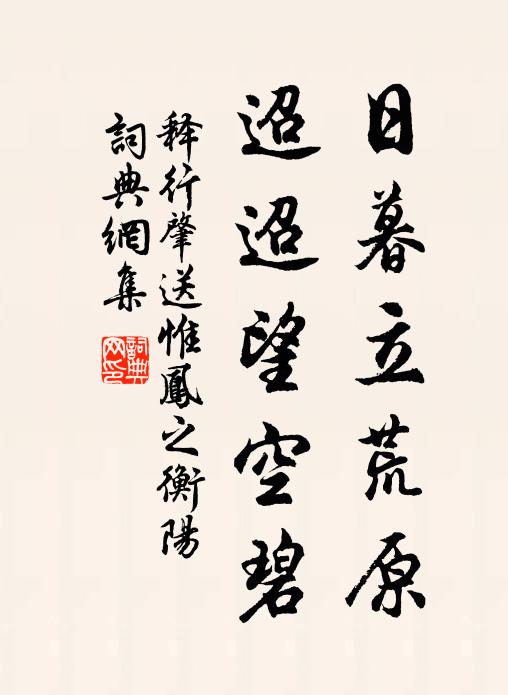 日暮立荒原
迢迢望空碧
释行肇送惟鳳之衡陽
詞典網集
詞典網印